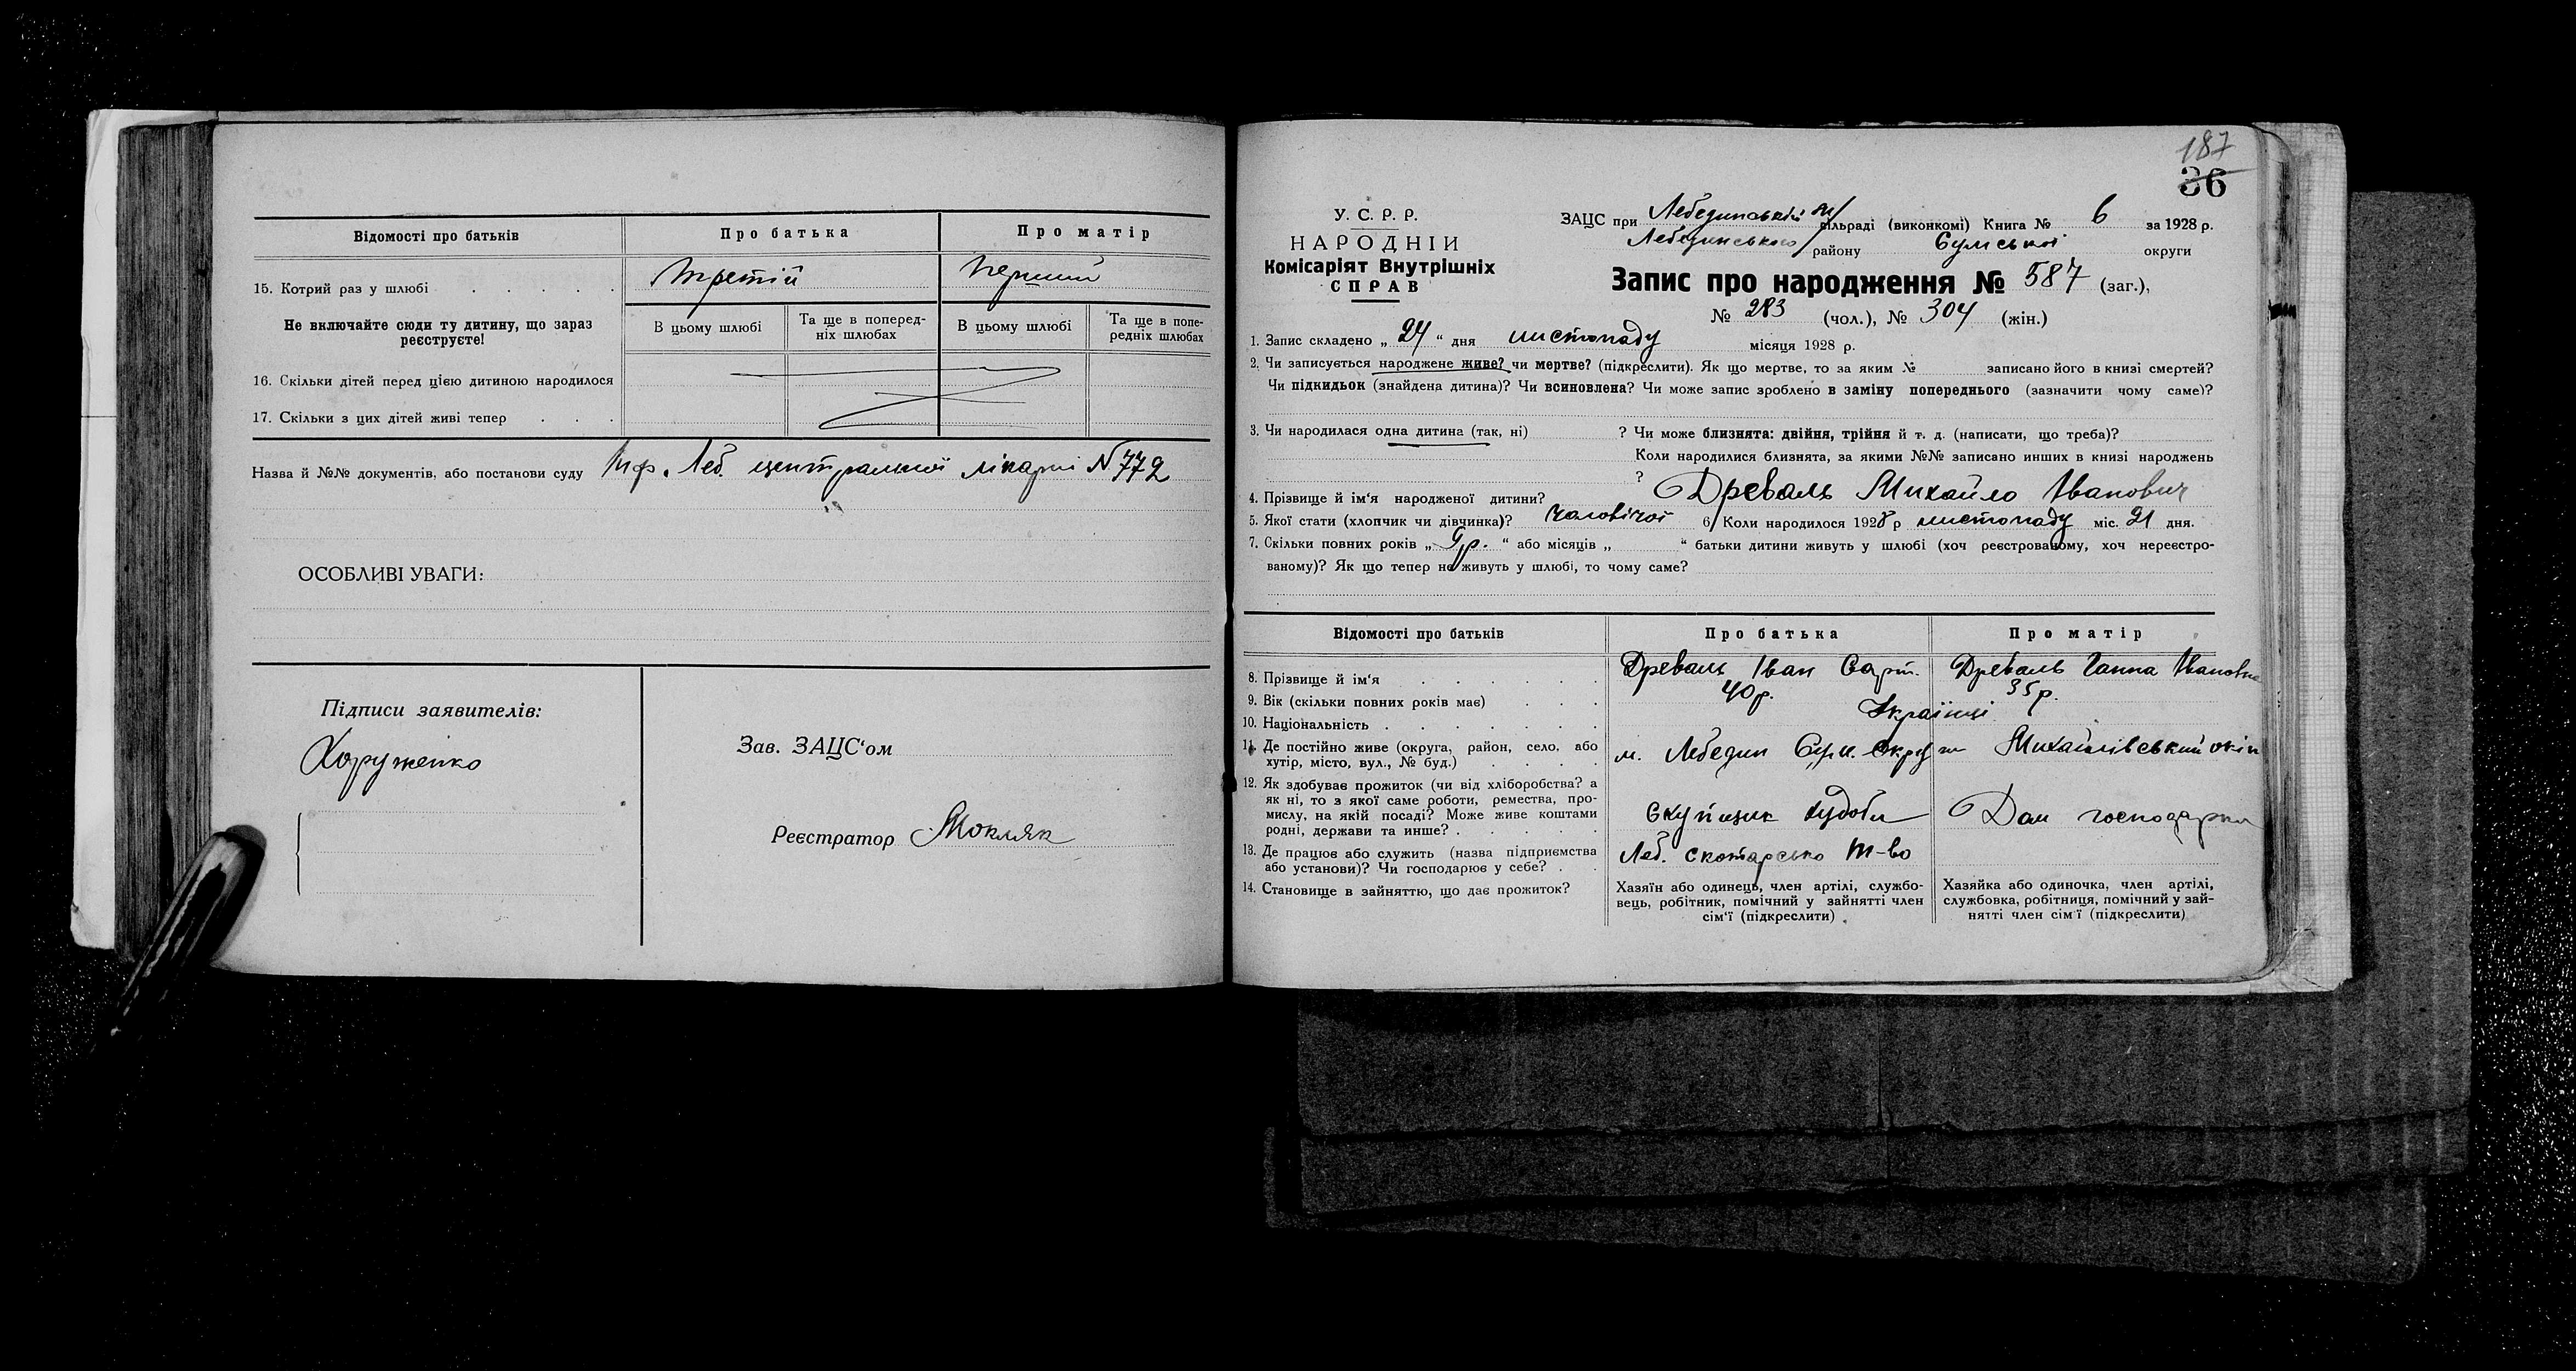 Відомості про батьків
Про батька
Про матір
15. Котрий раз у шлюбі . . . . .
третій
перший
Не включайте сюди ту дитину, що зараз реєструєте!
В цьому шлюбі
Та ще в поперед-
ніх шлюбах
В цьому шлюбі
Та ще в попе-
редніх шлюбах
16. Скільки дітей перед цією дитиною народилося
17. Скільки з цих дітей живі тепер . . .
Назва й №№ документів, або постанови суду Леб. центральної лікарні N 772
ОСОБЛИВІ УВАГИ:
Підписи заявителів:
Хоруженко
Зав. ЗАЦС'ом
Реєстратор Мокляк
187
36
У. С. Р. Р.
НАРОДНІЙ
Комісаріят Внутрішніх
СПРАВ
ЗАЦС при Лебединській сільраді (виконкомі) Книга № 6 за 1928 р.
Лебединського району Сумської округи
Запис про народження № 587 (заг.),
№ 283 (чол.), № 304 (жін.)
1. Запис складено „ 24 “ дня листопаду місяця 1928 р.
2. Чи записується народжене живе? чи мертве? (підкреслити). Як що мертве, то за яким № записано його в книзі смертей?
Чи підкидьок (знайдена дитина)? Чи всиновлена? Чи може запис зроблено в заміну попереднього (зазначити чому саме)?
3. Чи народилася одна дитина (так, ні) ? Чи може близнята: двійня, трійня й т. д. (написати, що треба)?
Коли народилися близнята, за якими №№ записано инших в книзі народжень
?
4. Прізвище й ім'я народженої дитини? Древаль Михайло Іванович
5. Якої стати (хлопчик чи дівчинка)? чоловічої 6. Коли народилося 1928 р листопаду міс. 21 дня.
7. Скільки повних років „ 9 р. “ або місяців „ “ батьки дитини живуть у шлюбі (хоч реєстрованому, хоч нереєстро-
ваному)? Як що тепер не живуть у шлюбі, то чому саме?
Відомості про батьків
Про батька
Про матір
8. Прізвище й ім'я . . . . . .
Древаль Іван
Древаль Ганна Івановна
9. Вік (скільки повних років має) . . .
40 р.
35 р.
10. Національність . . . . . .
Українці
11. Де постійно живе (округа, район, село, або
хутір, місто, вул., № буд.) . . . .
м. Лебедин Сум. округи Михайлівський
12. Як здобуває прожиток (чи від хліборобства? а
як ні, то з якої саме роботи, ремества, про-
мислу, на якій посаді? Може живе коштами
родні, держави та инше? . . . . .
Скупщик худоби
Дом господарка
13. Де працює або служить (назва підприємства
або установи)? Чи господарює у себе? . .
Леб. скотарсько т-во
14. Становище в зайняттю, що дає прожиток?
Хазяїн або одинець, член артілі, службо-
вець, робітник, помічний у зайнятті член
сім'ї (підкреслити)
Хазяйка або одиночка, член артілі,
службовка, робітниця, помічний у зай-
нятті член сім'ї (підкреслити)